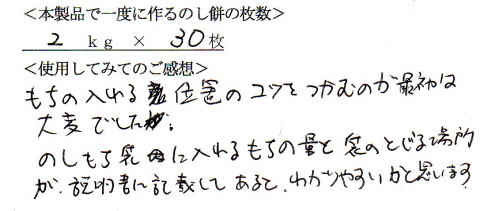 <本製品で一度に作るのし餅の枚数>
2 kg × 30枚
<使用してみてのご感想>
もちの入れる位置のコツをつかむのが最初は
大変でした。
のしもち袋に入れるもちの量と袋のとじる場所
が、説明書に記載してあると、わかりやすいかと思います